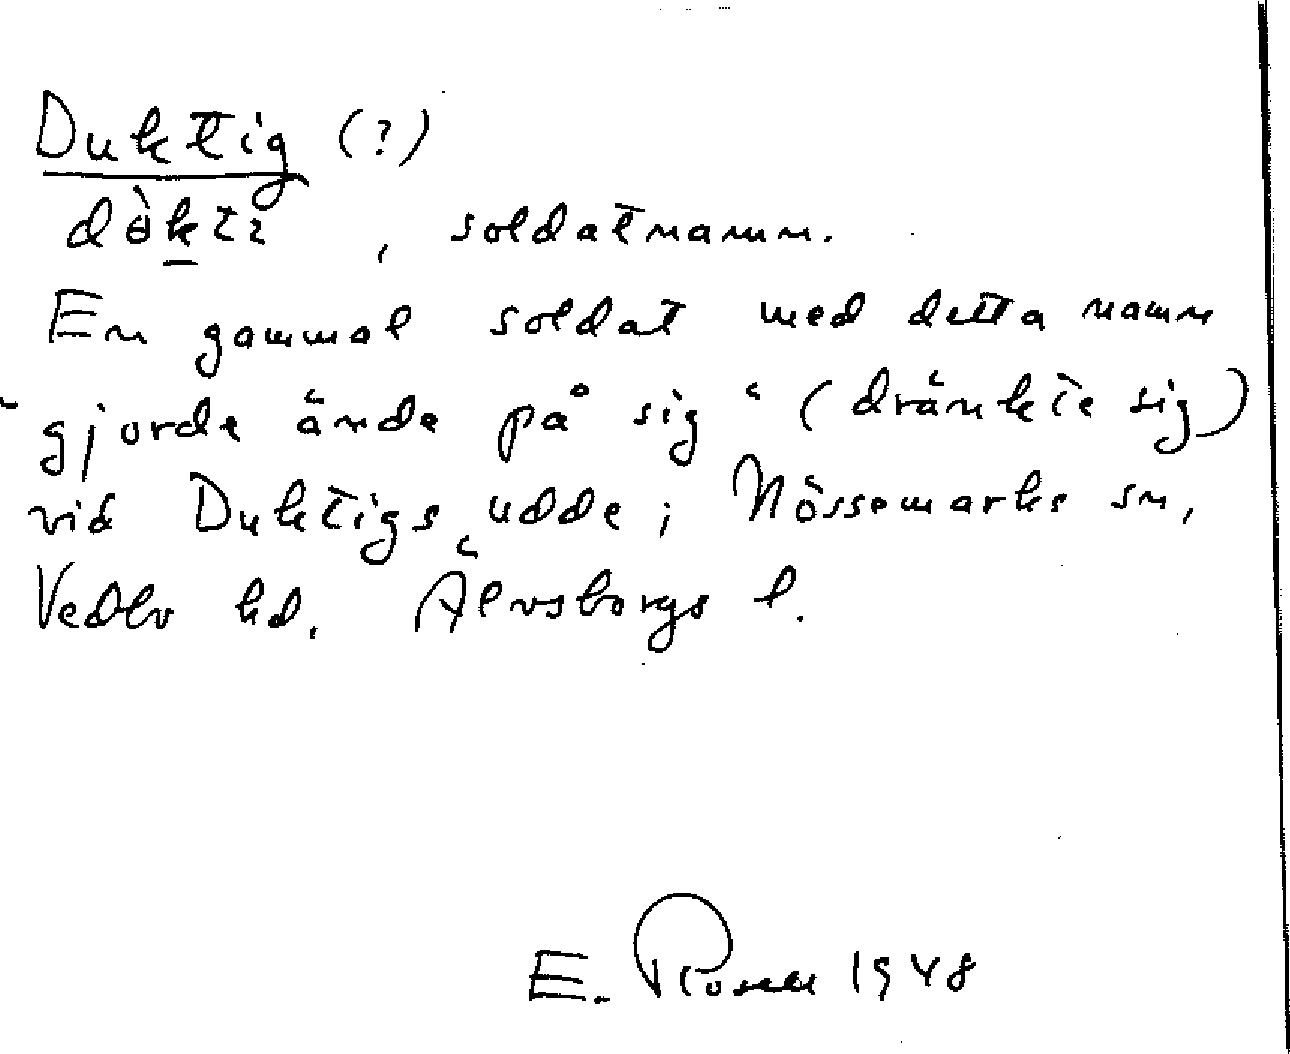 Duktig (?)
dòkti, soldatnamn.
En gammal soldat med detta namn
"gjorde ände på sig" (dränkte sig)
vid Duktigs udde i Nössemarks sn,
Vedbo hd. Älvsborgs l.
E. Rosell 1948